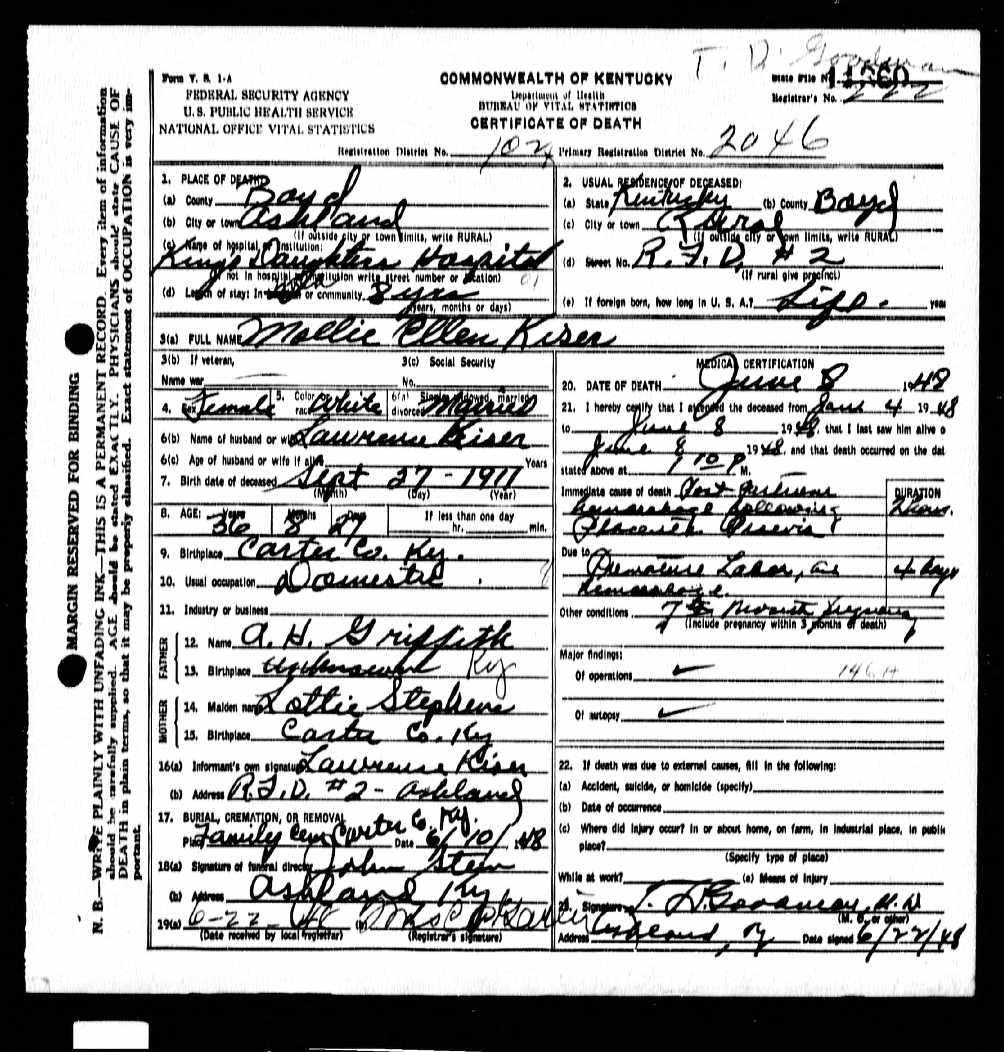 T. D. Goodman
Form V. S. 1-A
COMMONWEALTH OF KENTUCKY
State File No. 11560
FEDERAL SECURITY AGENCY
Department of Health
Registrar's No. 222
U.S. PUBLIC HEALTH SERVICE
BUREAU OF VITAL STATISTICS
NATIONAL OFFICE VITAL STATISTICS
CERTIFICATE OF DEATH
Registration District No. 102 Primary Registration District No. 2046
MARGIN RESERVED FOR BINDING
N. B.—WRITE PLAINLY WITH UNFADING INK—THIS IS A PERMANENT RECORD. Every item of information
should be carefully supplied. AGE should be stated EXACTLY. PHYSICIANS should state CAUSE OF
DEATH in plain terms, so that it may be properly classified. Exact statement of OCCUPATION is very im-
portant.
1. PLACE OF DEATH:
(a) County Boyd
(b) City or town Ashland
(If outside city or town limits, write RURAL)
(c) Name of hospital or institution:
Kings Daughters Hospital
(If not in hospital or institution write street number or location)
(d) Length of stay: In or community 8 yrs
(years, months or days)
2. USUAL RESIDENCE OF DECEASED:
(a) State Kentucky (b) County Boyd
(c) City or town Rural
(If outside city or town limits, write RURAL)
(d) Street No. R.F.D. #2
(If rural give precinct)
(e) If foreign born, how long in U. S. A.? Life. years
3(a) FULL NAME Mollie Ellen Kiser
3(b) If veteran,
Name war
3(c) Social Security
No.
4. Sex Female 5. Color or race White 6(a) Single, widowed, married, divorced Married
6(b) Name of husband or wife Lawrence Kiser
6(c) Age of husband or wife if alive Years
7. Birth date of deceased Sept 27-1911
(Month) (Day) (Year)
8. AGE: Years Months Days If less than one day
36 8 hr. min.
9. Birthplace Carter Co. Ky.
10. Usual occupation Domestic
11. Industry or business
FATHER
12. Name A. H. Griffith
13. Birthplace unknown Ky
MOTHER
14. Maiden name Lottie Stephens
15. Birthplace Carter Co. Ky
16(a) Informant's own signature Lawrence Kiser
(b) Address R.F.D. #2 - Ashland
17. BURIAL, CREMATION, OR REMOVAL
Place Family Cem Carter C. Ky. Date 6/10/48
18(a) Signature of funeral director John Steen
(b) Address Ashland Ky.
19(a) 6-22- (b)
(Date received by local registrar) (Registrar's signature)
MEDICAL CERTIFICATION
20. DATE OF DEATH June 8 1948
21. I hereby certify that I attended the deceased from June 4 1948
to June 8 1948, that I last saw him alive o
June 8 1948, and that death occurred on the dat
stated above at 1 10 P M.
Immediate cause of death Post Partum DURATION
hemorrhage following 2 hours.
Placenta Praevia
Due to
Premature Labor, and 4 days
hemorrhage.
Other conditions 7th Month Pregnancy
(Include pregnancy within 3 months of death)
Major findings:
Of operations ✓ 146A
Of autopsy ✓
22. If death was due to external causes, fill in the following:
(a) Accident, suicide, or homicide (specify)
(b) Date of occurrence
(c) Where did injury occur? In or about home, on farm, in industrial place, in public
place?
(Specify type of place)
While at work? (e) Means of injury
23. Signature T. D. Goodman, M.D
(M. D. or other)
Address Ashland, Ky Date signed 6/22/48